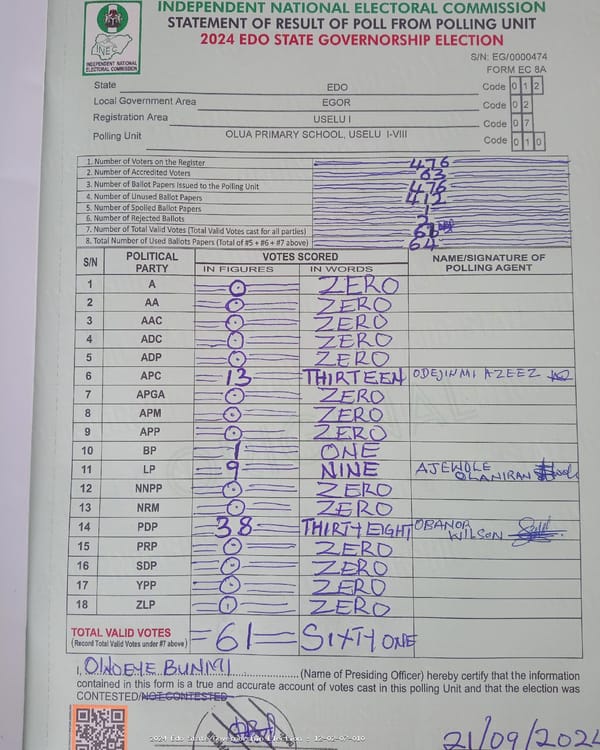 INDEPENDENT NATIONAL ELECTORAL COMMISSION
STATEMENT OF RESULT OF POLL FROM POLLING UNIT
2024 EDO STATE GOVERNORSHIP ELECTION
INEC
INDEPENDENT NATIONAL
ELECTORAL COMMISSION
S/N: EG/0000474
FORM EC 8A
State EDO Code 0 1 2
Local Government Area EGOR Code 0 2
Registration Area USELU I Code 0 7
Polling Unit OLUA PRIMARY SCHOOL, USELU I-VIII Code 0 1 0
1. Number of Voters on the Register 476
2. Number of Accredited Voters 63
3. Number of Ballot Papers Issued to the Polling Unit 476
4. Number of Unused Ballot Papers 412
5. Number of Spoiled Ballot Papers 1
6. Number of Rejected Ballots 2
7. Number of Total Valid Votes (Total Valid Votes cast for all parties) 61
8. Total Number of Used Ballots Papers (Total of #5 + #6 + #7 above) 64
S/N POLITICAL PARTY VOTES SCORED NAME/SIGNATURE OF POLLING AGENT
IN FIGURES IN WORDS
1 A 0 ZERO
2 AA 0 ZERO
3 AAC 0 ZERO
4 ADC 0 ZERO
5 ADP 0 ZERO
6 APC 13 THIRTEEN ODEJINMI AZEEZ
7 APGA 0 ZERO
8 APM 0 ZERO
9 APP 0 ZERO
10 BP 1 ONE
11 LP 9 NINE AJEWOLE OLANIRAN
12 NNPP 0 ZERO
13 NRM 0 ZERO
14 PDP 38 THIRTY EIGHT OBANOR WILSON
15 PRP 0 ZERO
16 SDP 0 ZERO
17 YPP 0 ZERO
18 ZLP 0 ZERO
TOTAL VALID VOTES =61= SIXTY ONE
(Record Total Valid Votes under #7 above)
I, BUNMI (Name of Presiding Officer) hereby certify that the information
contained in this form is a true and accurate account of votes cast in this polling Unit and that the election was
CONTESTED/NOT CONTESTED
2024 Edo State Governorship Election - 12-02-07-010
21/09/2024